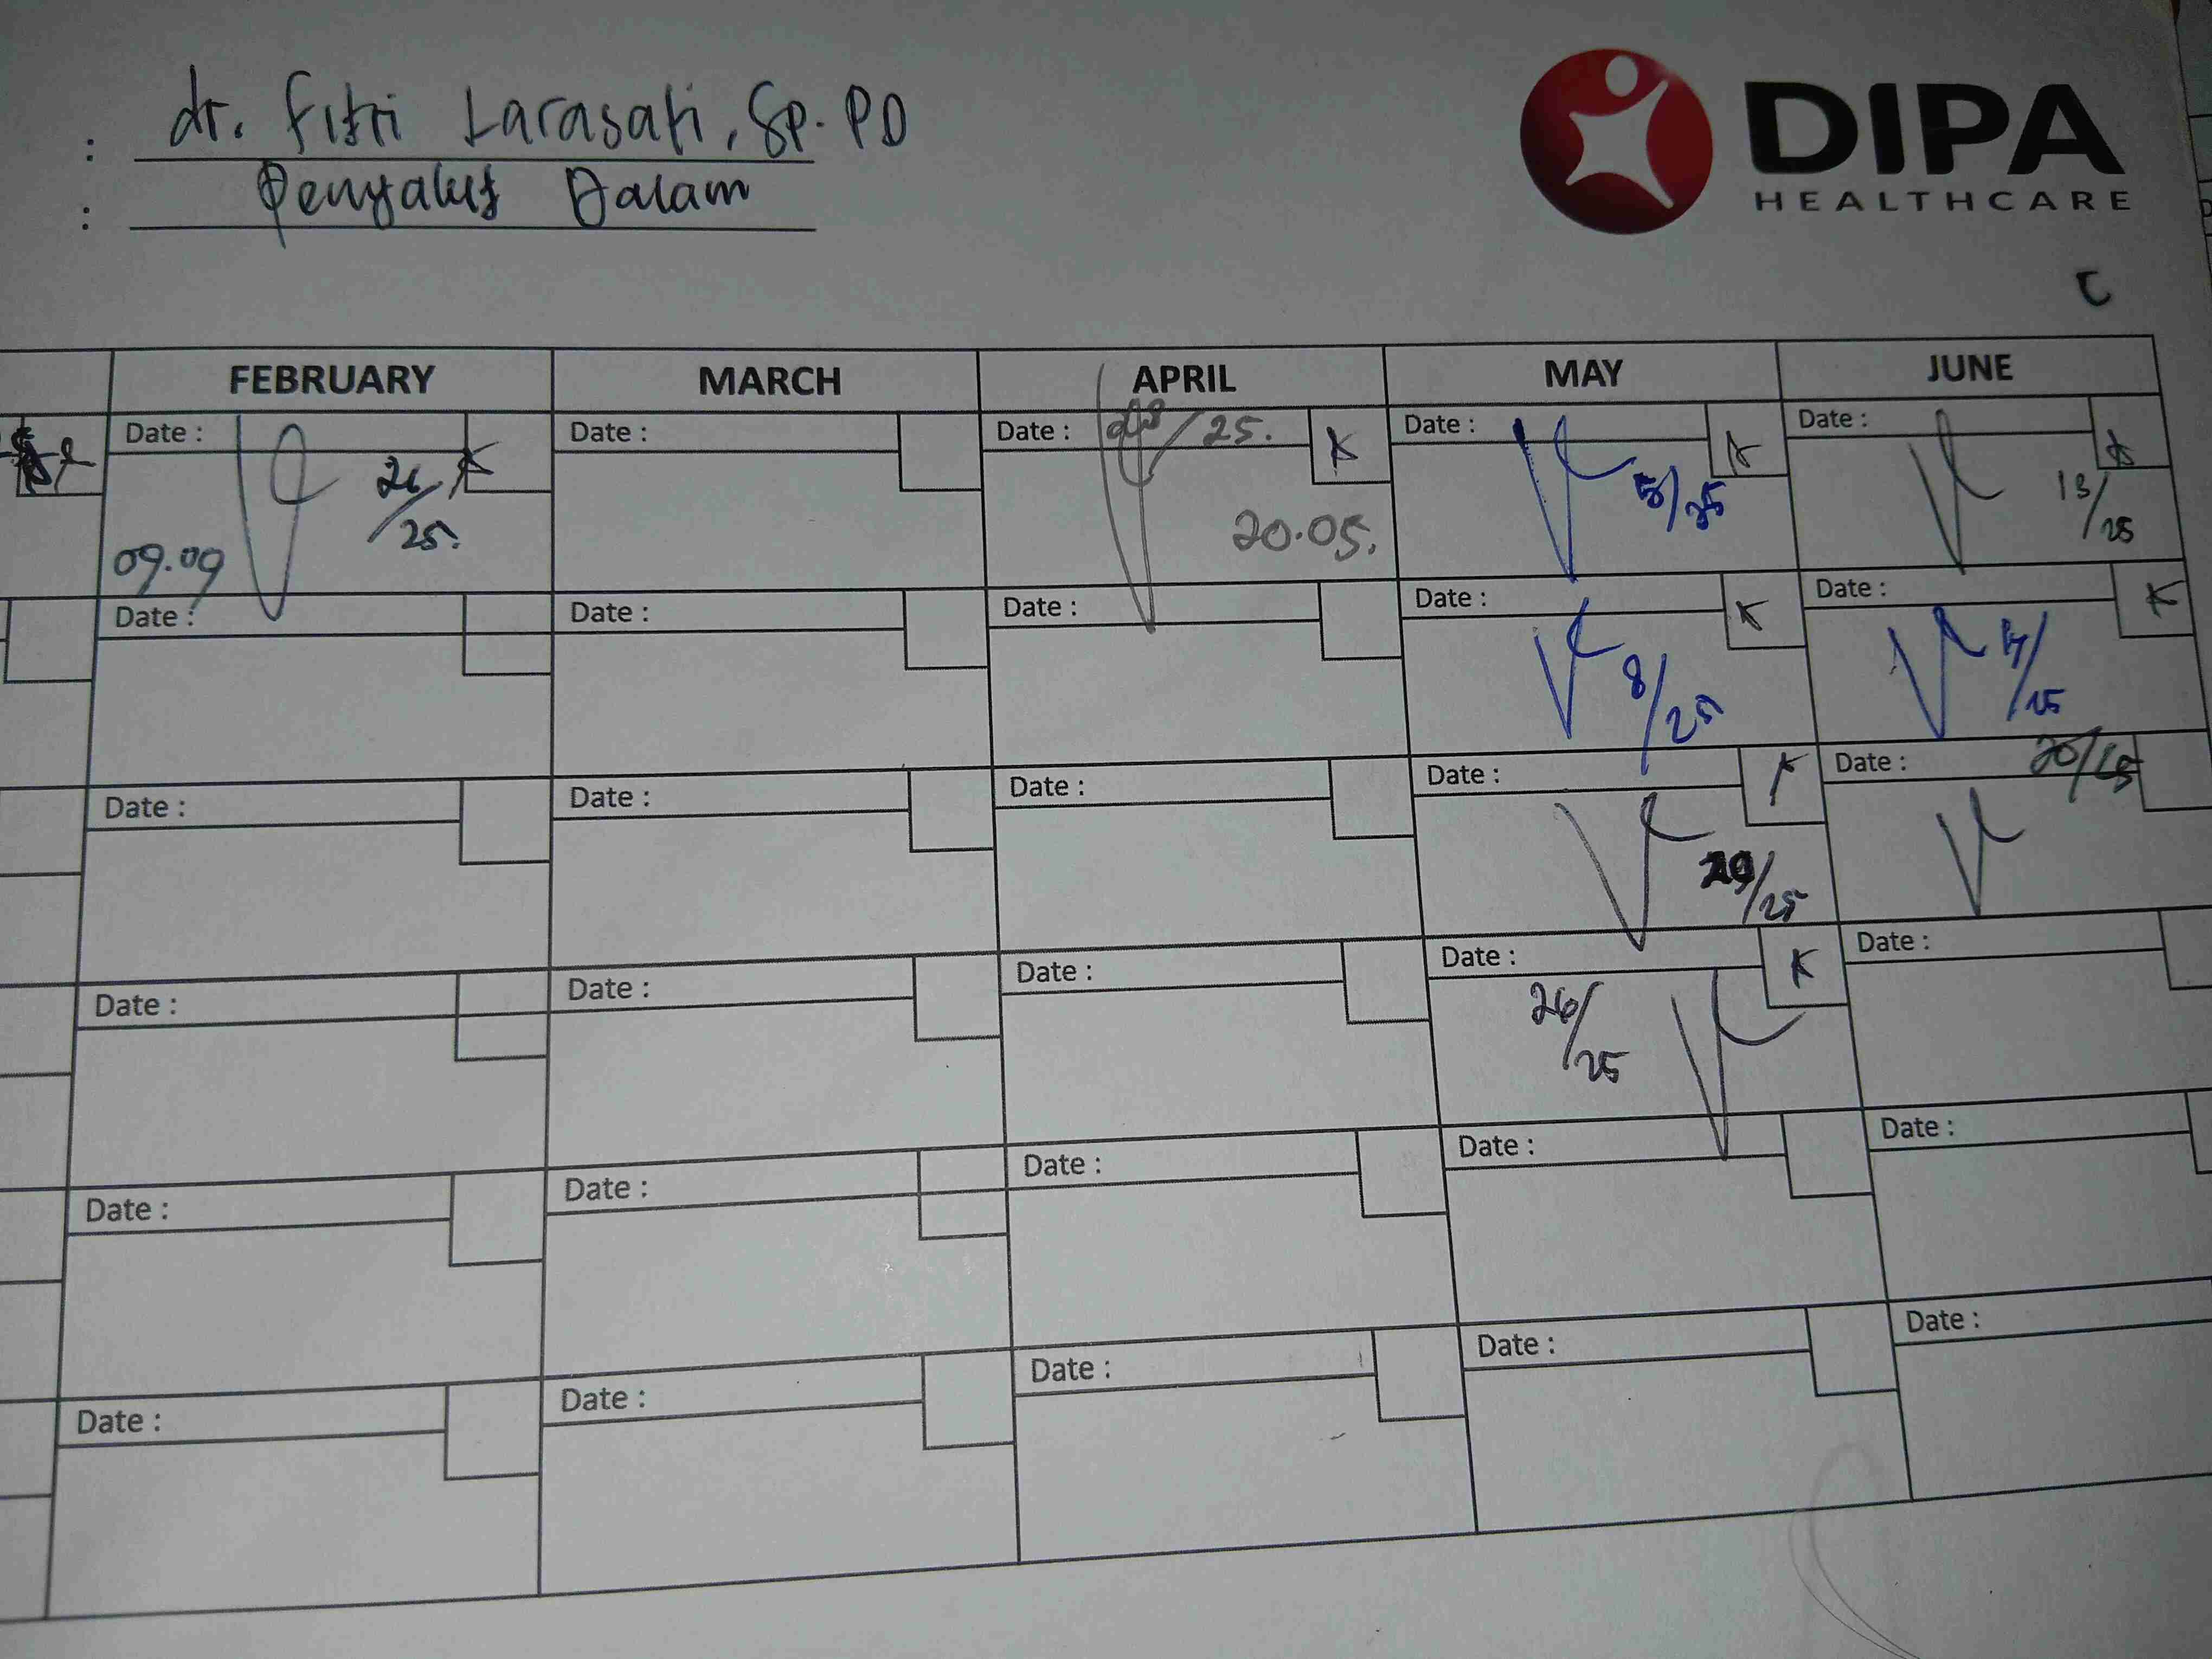 : dr. Fitri Larasati, Sp. PD
: Penyakit Dalam
DIPA
HEALTHCARE
C
FEBRUARY MARCH APRIL MAY JUNE
Date : Date : Date : /25. K Date : K Date :
26/25. K
5/25
13/25
09.09
20.05.
Date : Date : Date : Date : K Date : K
8/25
17/25
Date : Date : Date : Date : K Date : 20/25
/25
Date : Date : Date : Date : K Date :
26/25
Date : Date : Date : Date : Date :
Date : Date : Date : Date : Date :